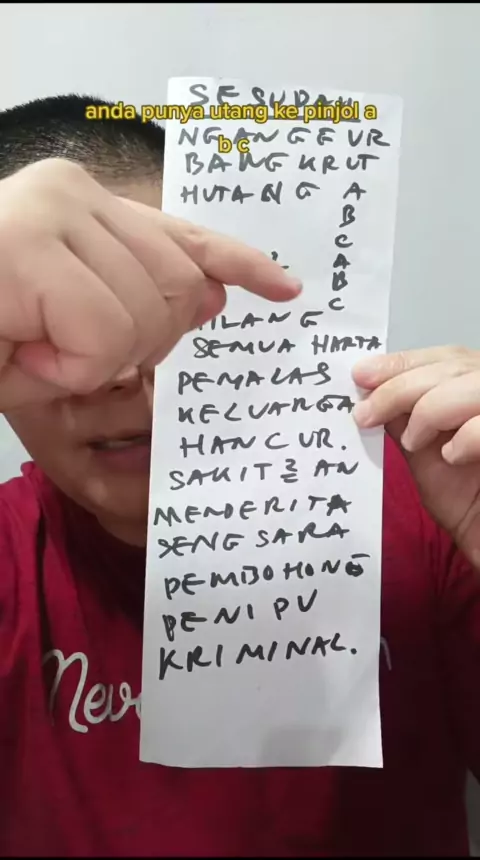 anda punya utang ke pinjol a
b c
SESUDAH
NGANGEUR
BANGKRUT
HUTANG A
B
C
A
B
C
SEMUA HARTA
PEMALAS
KELUARGA
HANCUR.
SAKIT2 AN
MENDERITA
SENGSARA
PEMBOHONG
PENIPU
KRIMINAL.